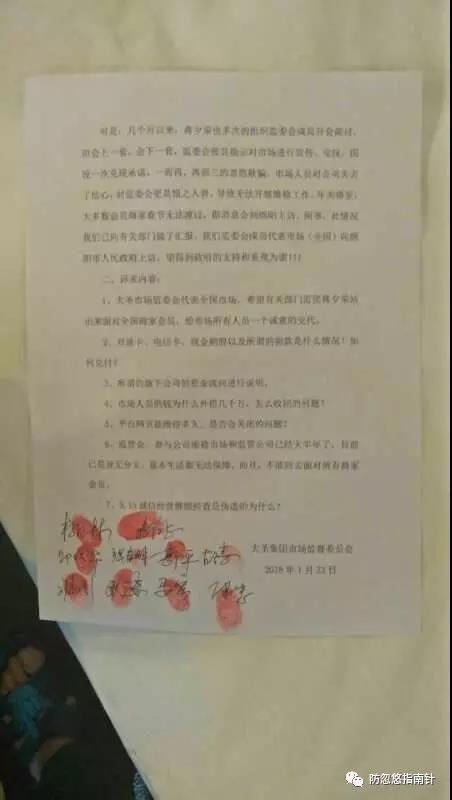 对是：几个月以来，蒋夕荣也多次的组织监委会成员开会商讨，
但会上一套，会下一套，监委会按其指示对市场进行宣传、安抚，因
没一次兑现承诺，一而再，再而三的忽悠欺骗，市场人员对公司失去了
信心，对监委会更是恨之入骨，导致无法开展维稳工作，年关将至，
大多数会员商家春节无法渡过，都消息会到绵阳上访、闹事，此情况
我们已向有关部门做了汇报，我们监委会成员代表市场（全国）向绵
阳市人民政府上访，望得到政府的支持和重视为谢!!!
二、诉求内容：
1、大圣市场监委会代表全国市场，希望有关部门追责蒋夕荣站
出来面对全国商家会员，给市场所有人员一个诚意的交代。
2、对油卡、电话卡、现金购物以及所谓的捐款是什么情况？如
何兑付？
3、所谓的旗下公司的资金流向进行说明。
4、市场人员的钱为什么外借几千万，怎么收回的问题？
5、平台网页能维持多久，是否会关闭的问题？
6、监管金、参与公司维稳市场和监管公司已经大半年了，目前
已是身无分文，基本生活都无法保障，而且，不能回去面对所有商家
会员。
7、3.15诚信经营牌照经查是伪造的为什么？
大圣集团市场监督委员会
2018年1月23日
防忽悠指南针